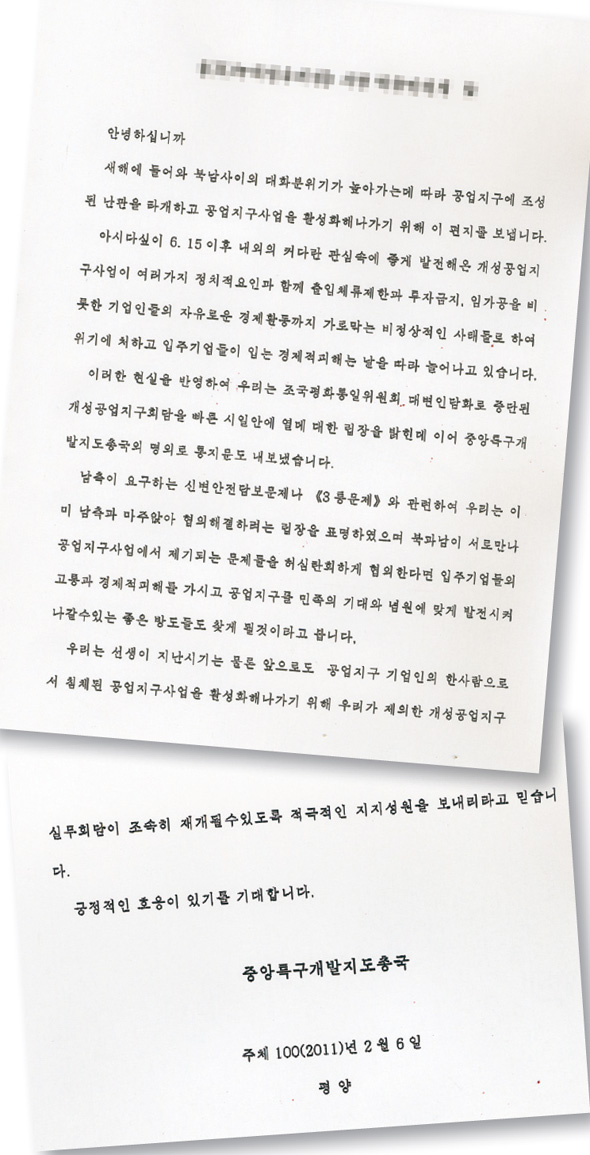 안녕하십니까
새해에 들어와 북남사이의 대화분위기가 높아가는데 따라 공업지구에 조성
된 난관을 타개하고 공업지구사업을 활성화해나가기 위해 이 편지를 보냅니다.
아시다싶이 6. 15이후 내외의 커다란 관심속에 좋게 발전해온 개성공업지
구사업이 여러가지 정치적요인과 함께 출입체류제한과 투자금지, 임가공을 비
롯한 기업인들의 자유로운 경제활동까지 가로막는 비정상적인 사태들로 하여
위기에 처하고 입주기업들이 입는 경제적피해는 날을 따라 늘어나고 있습니다.
이러한 현실을 반영하여 우리는 조국평화통일위원회 대변인담화로 중단된
개성공업지구회담을 빠른 시일안에 열데 대한 립장을 밝힌데 이어 중앙특구개
발지도총국의 명의로 통지문도 내보냈습니다.
남측이 요구하는 신변안전담보문제나 《3통문제》와 관련하여 우리는 이
미 남측과 마주앉아 협의해결하려는 립장을 표명하였으며 북과남이 서로만나
공업지구사업에서 제기되는 문제들을 허심탄회하게 협의한다면 입주기업들의
고통과 경제적피해를 가시고 공업지구를 민족의 기대와 념원에 맞게 발전시켜
나갈수있는 좋은 방도들도 찾게 될것이라고 봅니다.
우리는 선생이 지난시기는 물론 앞으로도 공업지구 기업인의 한사람으로
서 침체된 공업지구사업을 활성화해나가기 위해 우리가 제의한 개성공업지구
실무회담이 조속히 재개될수있도록 적극적인 지지성원을 보내리라고 믿습니
다.
긍정적인 호응이 있기를 기대합니다.
중앙특구개발지도총국
주체 100(2011)년 2 월 6 일
평 양